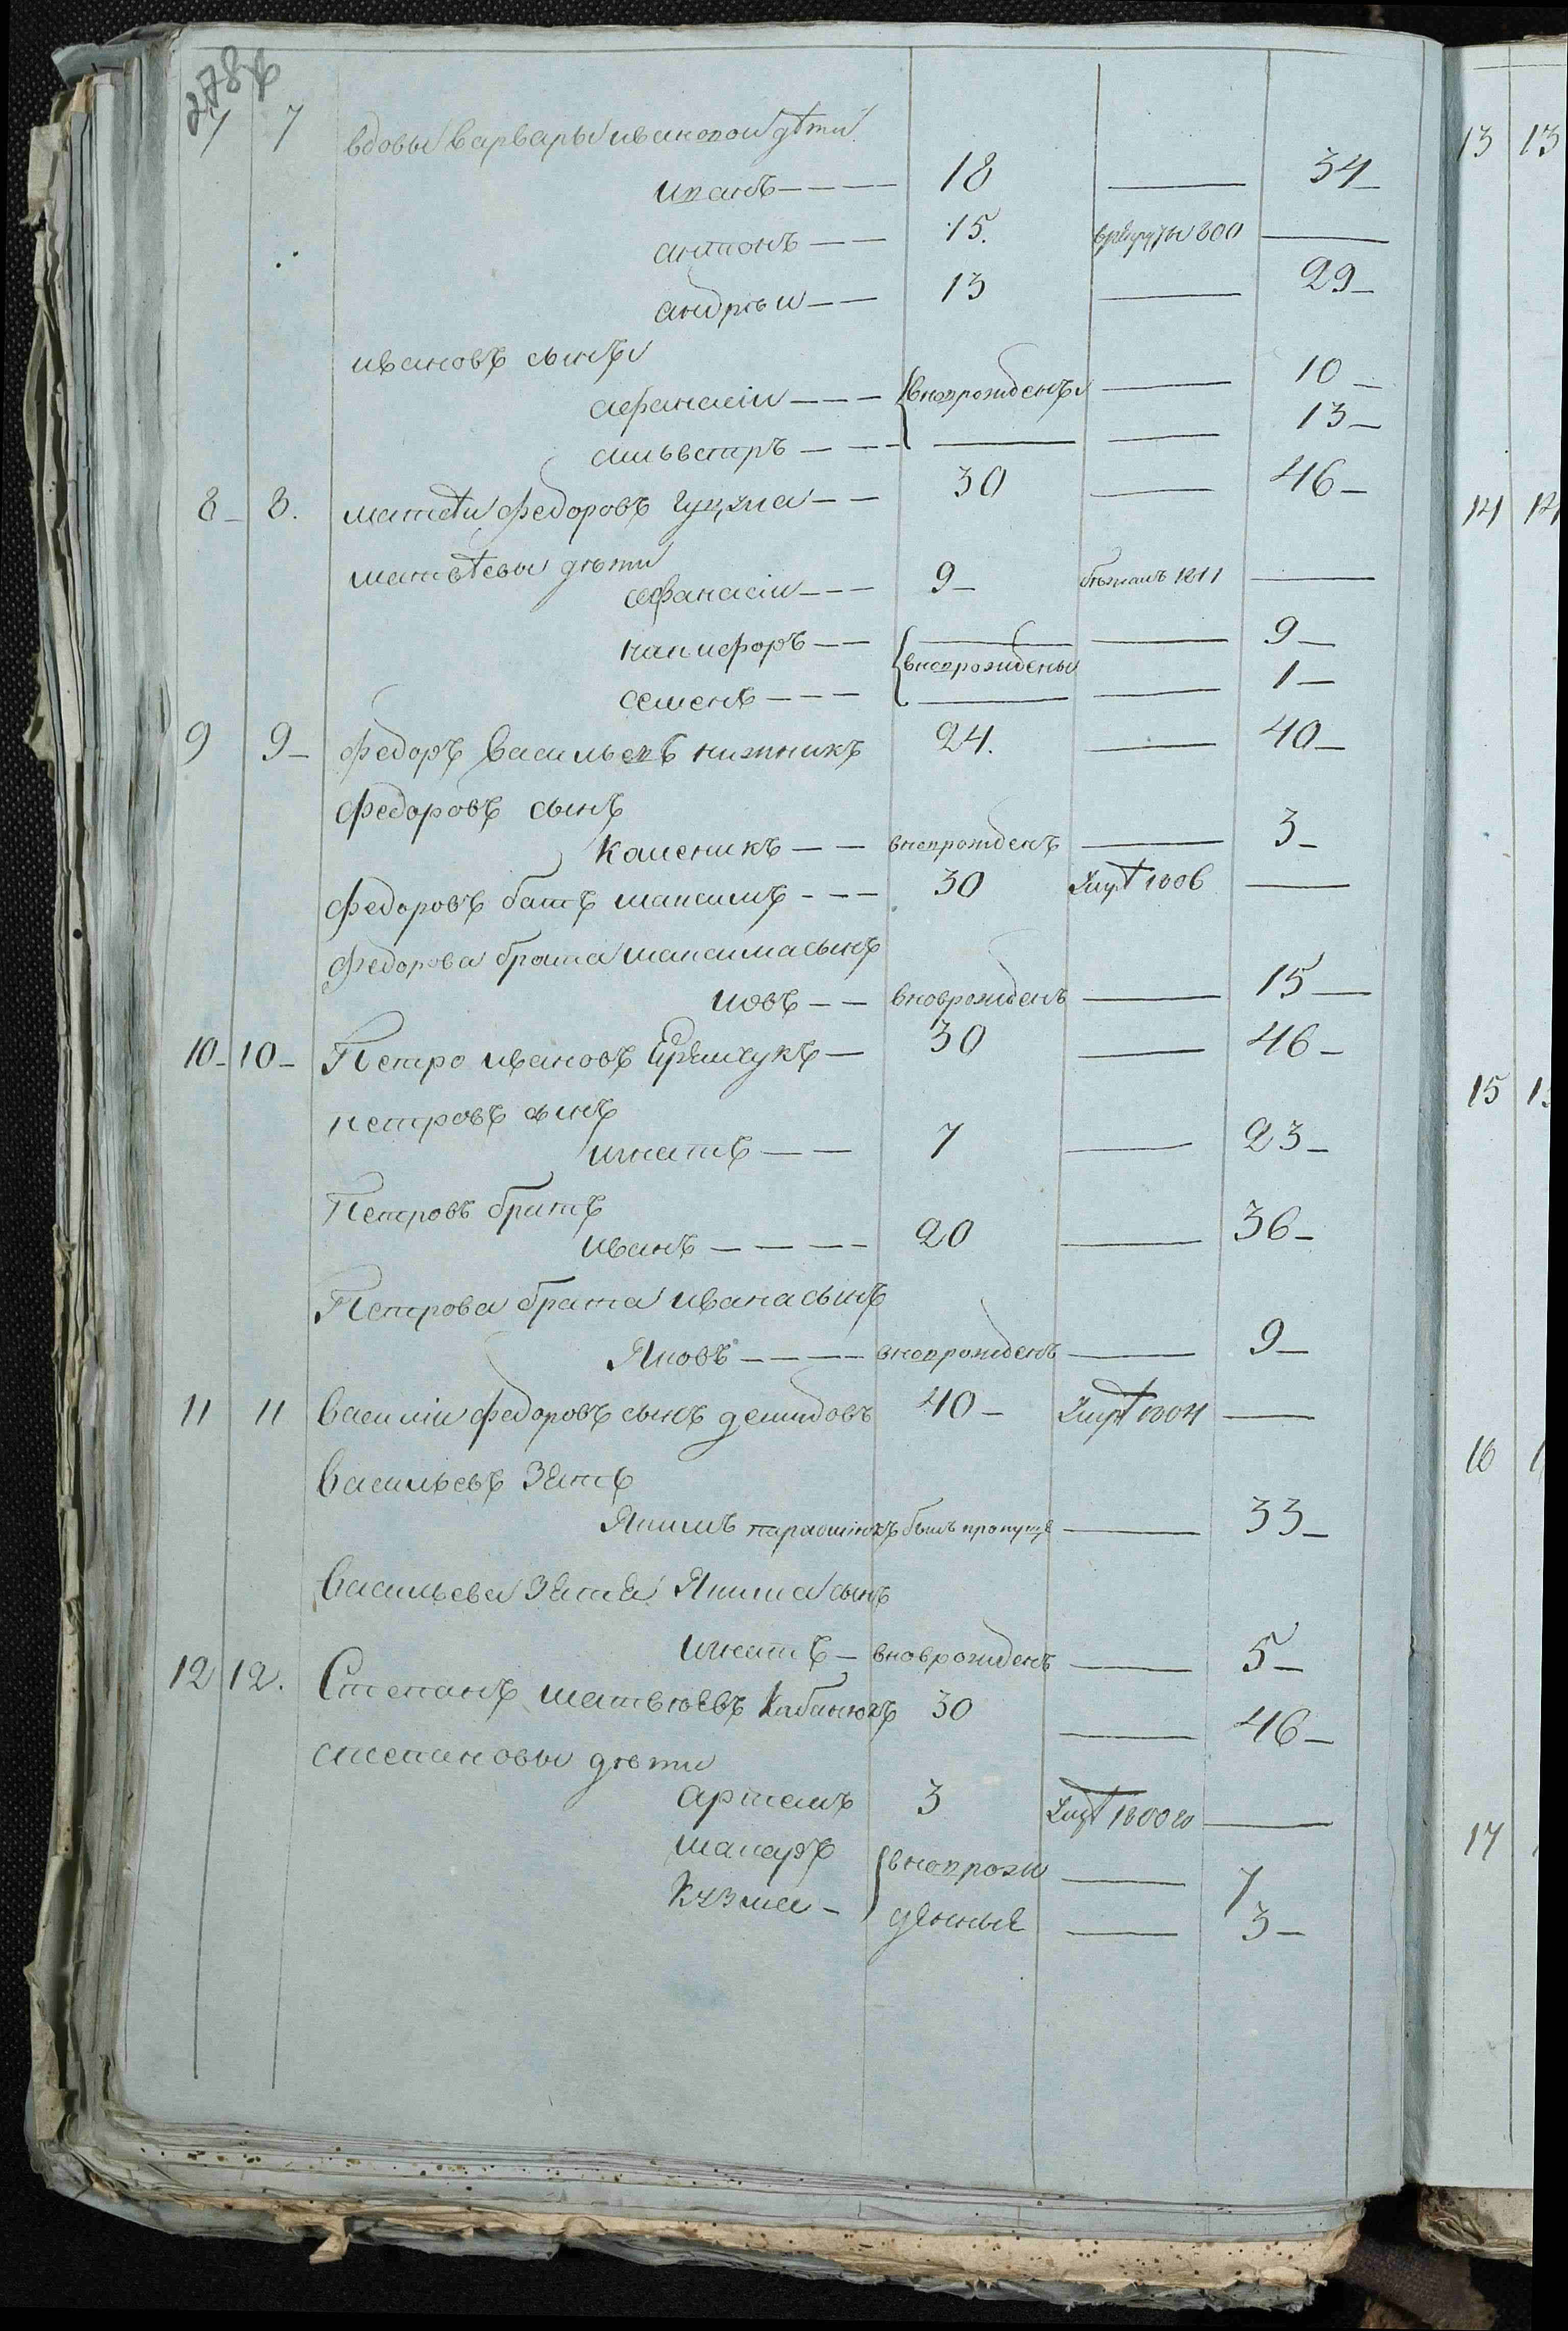 278
7 7 вдовы варвары ивановой дѣти
иванъ 18 34
антонъ 15. врекруты 800
андрѣи 13 29
ивановъ сынъ
афанасіи вновьрожденъ 10
сильвестръ 13
8 8. матвѣи федоровъ 30 46
матвѣевы дѣти
афанасіи 9 бѣжалъ 1811
никифоръ 9
вновьрожденъ
семенъ 1
9 9 федоръ васильевъ нижникъ 24. 40
федоровъ сынъ
каленикъ вновьрожденъ 3
федоровъ батъ максимъ 30 умрѣ 1806
федорова брата максима сынъ
иовъ вновьрожденъ 15
10 10 Петро ивановъ 30 46
петровъ сынъ
игнатъ 7 23
Петровъ братъ
иванъ 20 36
Петрова брата ивана сынъ
Яковъ вновьрожденъ 9
11 11 василіи федоровъ сынъ демидовъ 40 умрѣ 1804
васильевъ зять
Якимъ былъ пропуще 33
васильева зятя Якима сынъ
игнатъ вновьрожденъ 5
12 12. Степанъ матвѣевъ кабанюкъ 30 46
степановы дѣти
артемъ 3 умрѣ 1800го
макаръ вновьрож 7
кузма денные 3
13 13
14 14
15 1
16 1
17